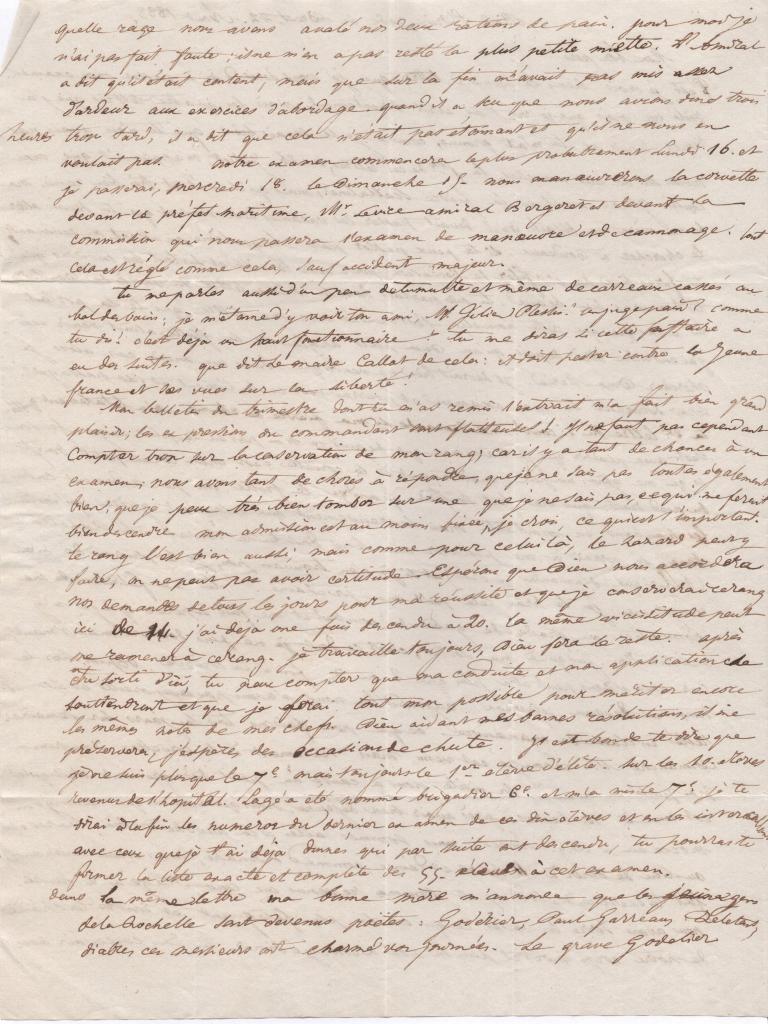 quelle rage nous avons avalé nos deux rations de pain. pour moi je
n'ai pas fait faute; il ne m'en a pas resté la plus petite miette. L'amiral
a dit qu'il était content, mais que sur la fin on avait pas mis assez
d'ardeur aux exercices d'abordage. quand il a su que nous avions dîné trois
heures trop tard, il a dit que cela n'était pas étonnant et qu'il ne nous en
voulait pas. notre examen commencera le plus probablement Lundi 16. et
je passerai, mercredi 18. le Dimanche 15. nous manoeuvrerons la corvette
devant le préfet maritime, Mr. le vice amiral Bergeret et devant la
commission qui nous passera l'examen de manoeuvre et de cannonage. tout
cela est réglé comme cela, sauf accident majeur.
tu me parles aussi d'un peu de tumulte et même de carreaux cassés au
bal des bains; je m'étonne d'y voir ton ami, Mr comme
tu dis! c'est déjà un haut fonctionnaire! tu me diras si cette affaire a
eu des suites. que dit le maire Callot de cela: il doit pester contre la jeune
france et ses vues sur la liberté!
Mon bulletin du trimestre dont tu m'as remis l'extrait m'a fait bien grand
plaisir; les expressions du commandant sont flatteuses! Il ne faut pas cependant
compter trop sur la conservation de mon rang; car il y a tant de chances à un
examen, nous avons tant de choses à répondre que je ne sais pas toutes également
bien, que je peux très bien tomber sur une que je ne sais pas, ce qui me ferait
bien descendre mon admission est au moins fixée, je crois, ce qui est l'important.
le rang l'est bien aussi; mais comme pour celui là, le hazard peut y
faire, on ne peut pas avoir certitude. Espérons que Dieu nous accordera
nos demandes de tous les jours pour ma réussite et que je conserverai ce rang
ici de 14. j'ai déjà une fois descendu à 20. la même vicissitude peut
me ramener à ce rang. je travaille toujours, Dieu fera le reste. après
être sorti d'ici, tu peux compter que ma conduite et mon application se
soutiendront et que je ferai tout mon possible pour mériter encore
les mêmes notes de mes chefs. Dieu aidant mes bonnes résolutions, il me
préservera, j'espère, des occasions de chute. Il est bon de te dire que
je ne suis plus que le 7e mais toujours le 1er élève d'élite. sur les 10 élèves
revenus de l'hopital. Lagé a été nommé brigadier 6e et m'a mis le 7e. je te
dirai à la fin les numeros du dernier examen de ces dix élèves et en les
avec ceux que je t'ai déjà donnés qui par suite ont descendu, tu pourras te
former la liste exacte et complète des 55 élèves à cet examen.
dans la même lettre ma bonne mère m'annonce que les jeunes gens
de la Rochelle sont devenus poëtes: Godelier, Paul Garreau, Deletang,
diables ces messieurs ont charmé vos journées. Le grave Godelier